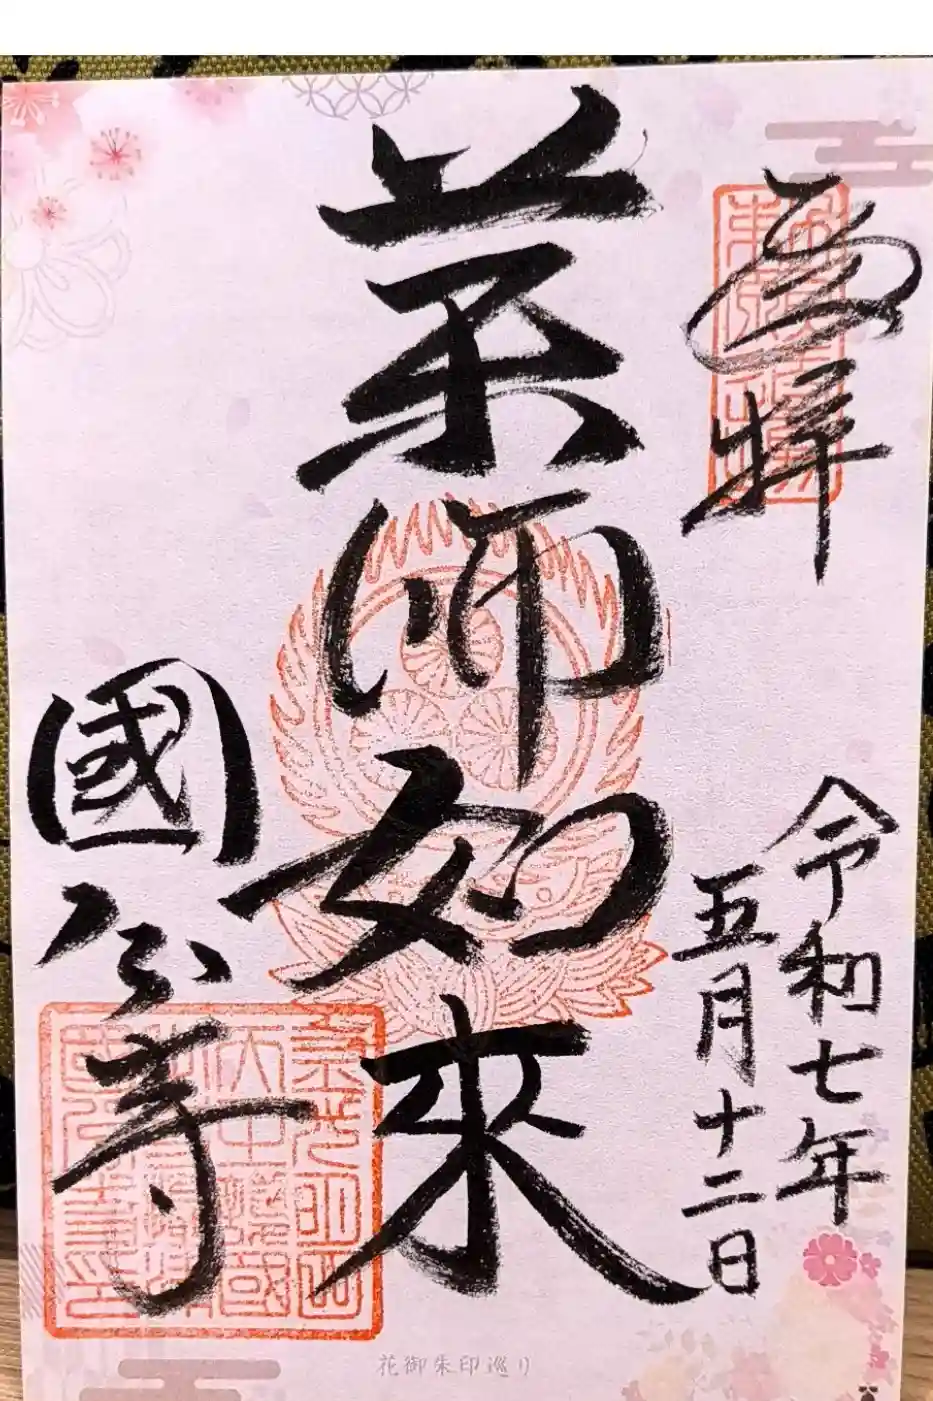 奉拝
令和七年
五月十二日
薬師如来
國分寺
花御朱印巡り